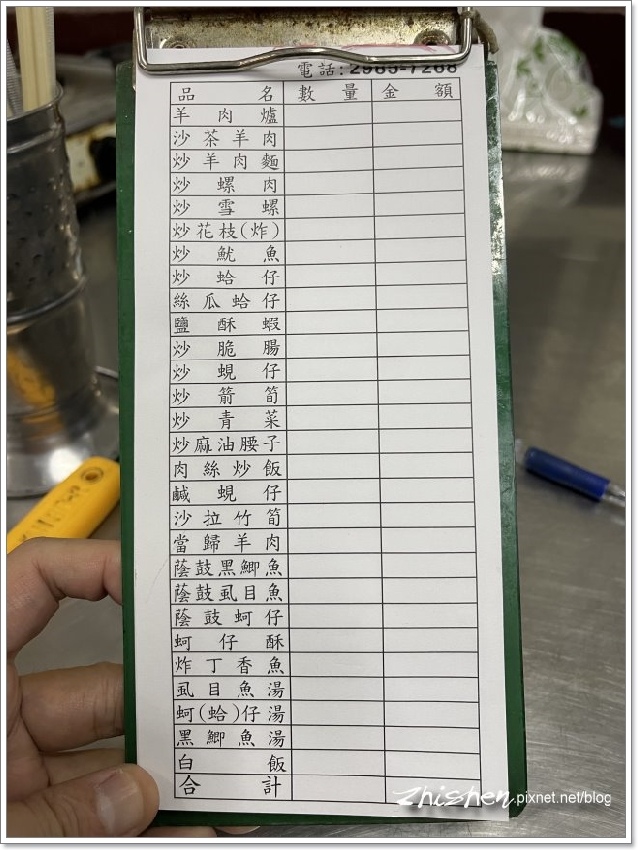 電話:2985-7268
品名 數量 金額
羊肉爐
沙茶羊肉
炒羊肉麵
炒螺肉
炒雪螺
炒花枝(炸)
炒魷魚
炒蛤仔
絲瓜蛤仔
鹽酥蝦
炒脆腸
炒蜆仔
炒箭筍
炒青菜
炒麻油腰子
肉絲炒飯
鹹蜆仔
沙拉竹筍
當歸羊肉
蔭鼓黑鯽魚
蔭鼓虱目魚
蔭鼓蚵仔
蚵仔酥
炸丁香魚
虱目魚湯
蚵(蛤)仔湯
黑鯽魚湯
白飯
合計
zhishen.pixnet.net/blog